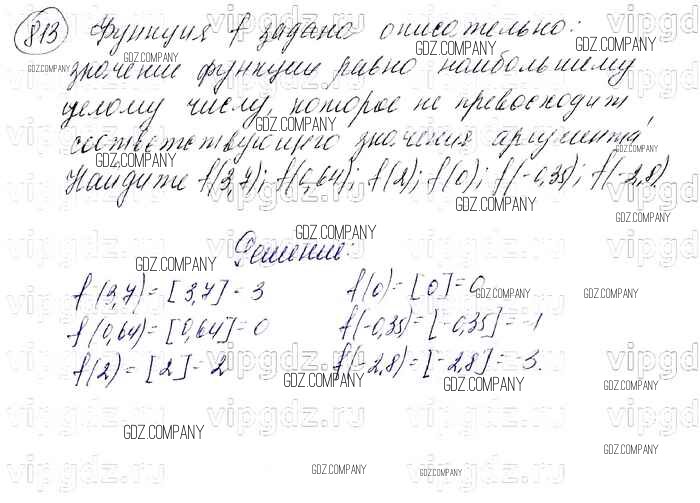 813 Функция f задана описательно:
значение функции равно наибольшему
целому числу, которое не превосходит
соответствующего значения аргумента.
Найдите f(3,7); f(0,64); f(2); f(0); f(-0,35); f(-2,8).
Решение:
f(3,7) = [3,7] = 3
f(0,64) = [0,64] = 0
f(2) = [2] = 2
f(0) = [0] = 0
f(-0,35) = [-0,35] = -1
f(-2,8) = [-2,8] = -3.
GDZ.COMPANY
vipgdz.ru